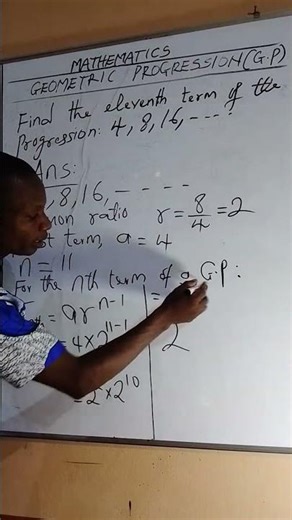 MATHEMATICS
GEOMETRIC PROGRESSION(G.P)
Find the eleventh term of the
Progression: 4, 8, 16, ----.
Ans:
8, 16, - - - -
ratio r = 8/4 = 2
term, a = 4
n = 11
For the nth term of a G.P:
= ar^{n-1}
= 4 x 2^{11-1}
= 2 x 2^{10}
=
2